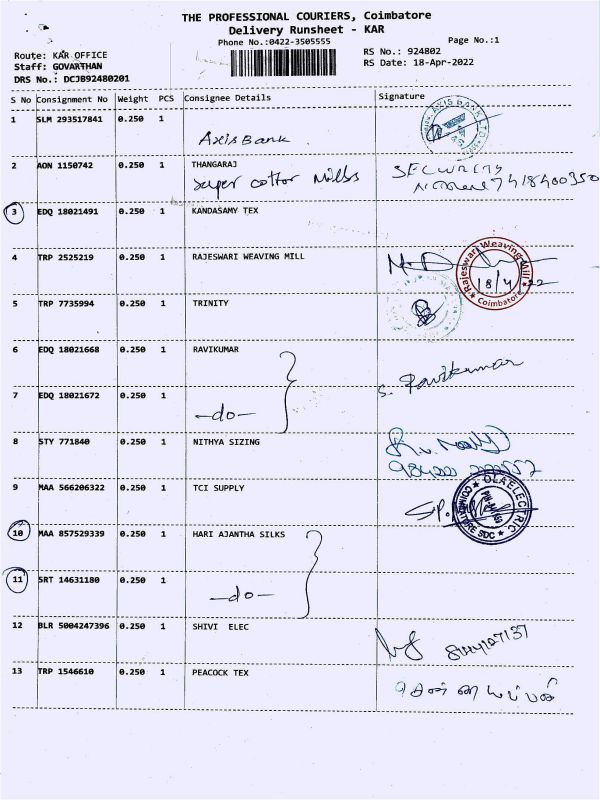 THE PROFESSIONAL COURIERS, Coimbatore
Delivery Runsheet - KAR
Phone No.:0422-3505555
Page No.:1
Route: KAR OFFICE
RS No.: 924802
Staff: GOVARTHAN
RS Date: 18-Apr-2022
DRS No.: DCJB92480201
S No Consignment No Weight PCS Consignee Details Signature
1 SLM 293517841 0.250 1
Axis Bank
AXIS BANK
2 AON 1150742 0.250 1 THANGARAJ
super cotton Mills
SECURITY
7418400350
3 EDQ 18021491 0.250 1 KANDASAMY TEX
4 TRP 2525219 0.250 1 RAJESWARI WEAVING MILL
Rajeswari Weaving Mill
18/4/22
Coimbatore
5 TRP 7735994 0.250 1 TRINITY
6 EDQ 18021668 0.250 1 RAVIKUMAR
S. Ravikumar
7 EDQ 18021672 0.250 1
-do-
8 STY 771840 0.250 1 NITHYA SIZING
9 MAA 566206322 0.250 1 TCI SUPPLY
OLAELECTRIC
COIMBATORE SDC
10 MAA 857529339 0.250 1 HARI AJANTHA SILKS
11 SRT 14631180 0.250 1
-do-
12 BLR 5004247396 0.250 1 SHIVI ELEC
13 TRP 1546610 0.250 1 PEACOCK TEX